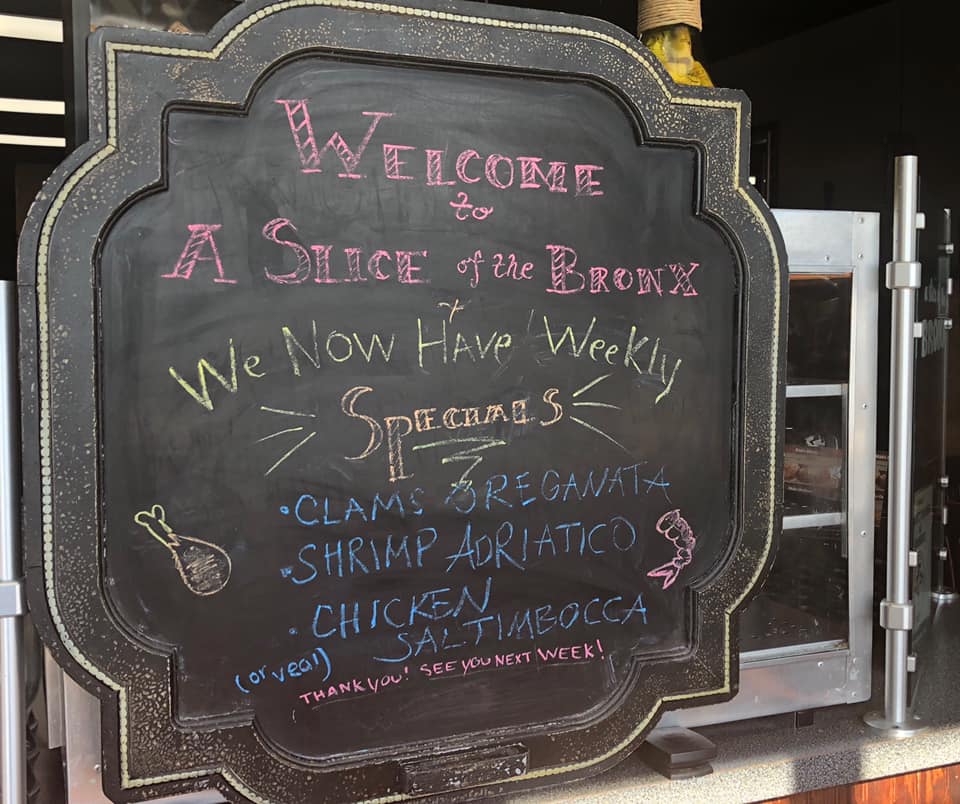 WELCOME
to
A SLICE of the BRONX
We Now Have Weekly
SPECIALS
• CLAMS OREGANATA
• SHRIMP ADRIATICO
• CHICKEN
SALTIMBOCCA
(or veal)
THANK YOU! SEE YOU NEXT WEEK!